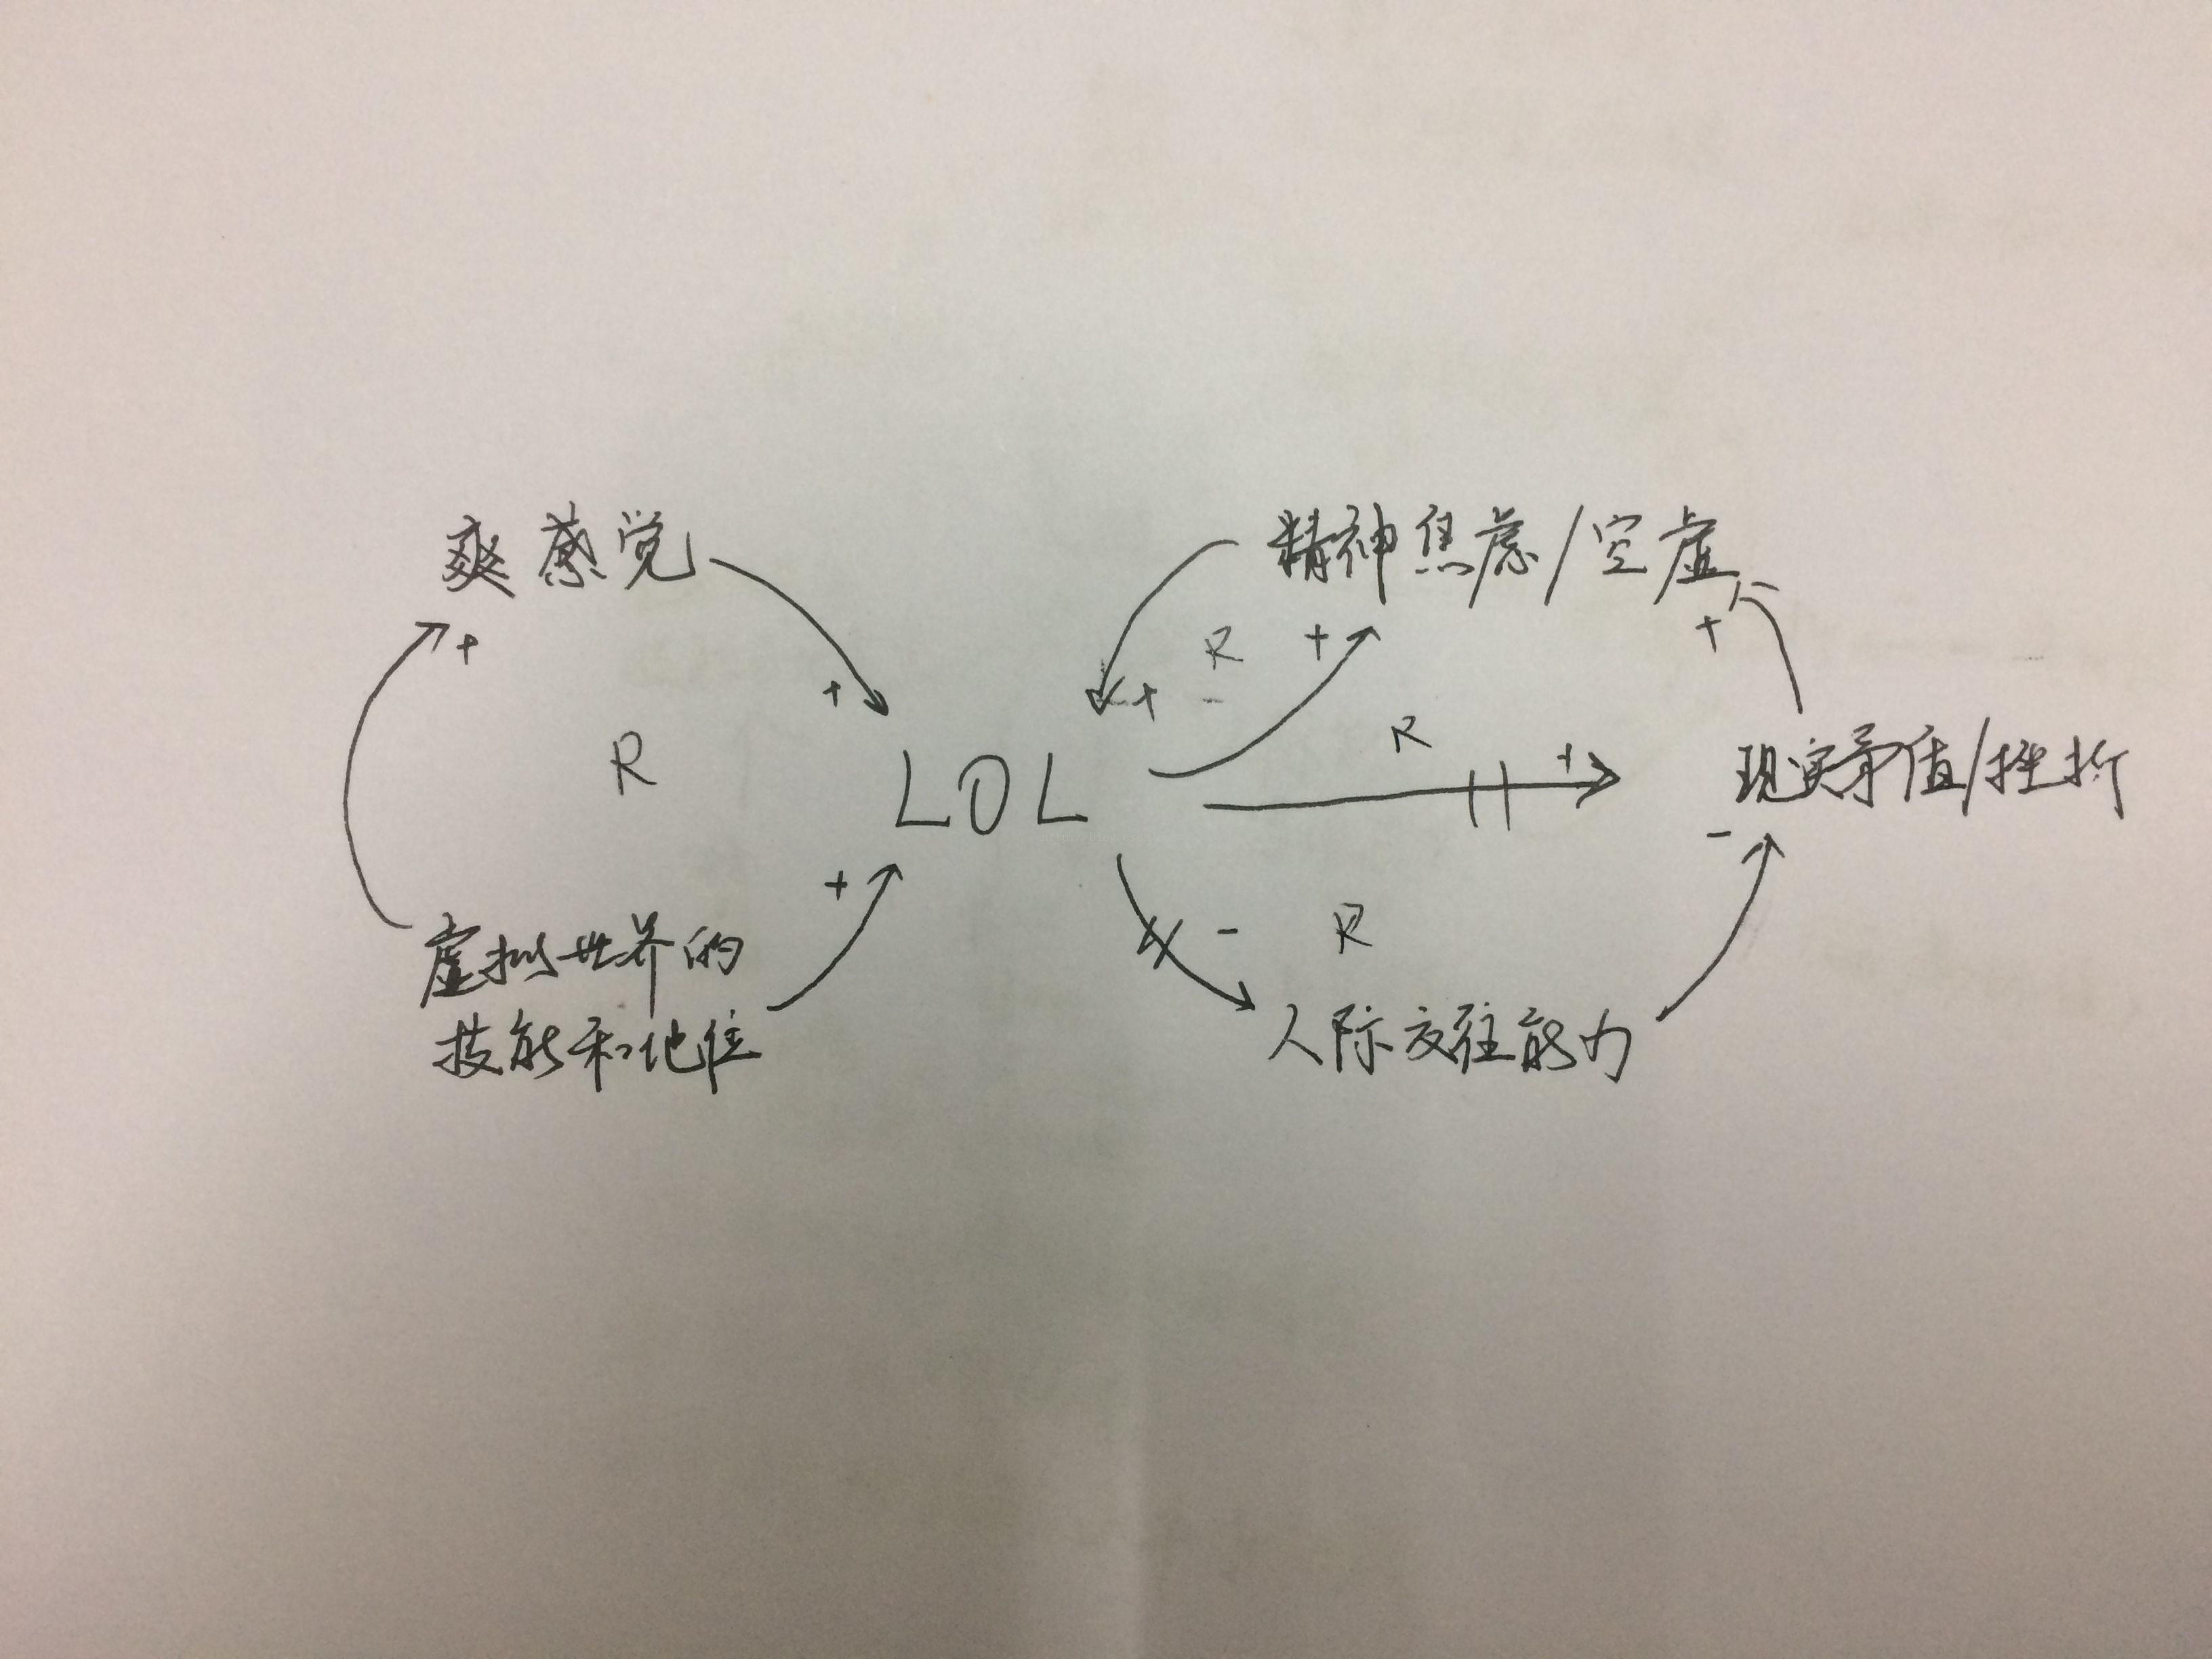 爽感觉
精神焦虑/空虚
+
R
+
+
+
+
-
R
R
+
LOL
现实矛盾/挫折
-
+
虚拟世界的
技能和地位
-
R
人际交往能力